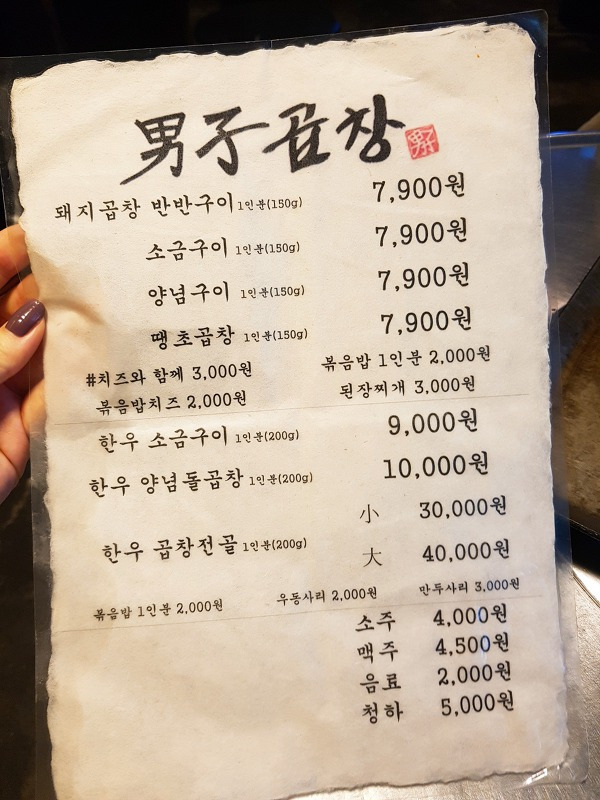 男子곱창 男子
돼지곱창 반반구이 1인분(150g) 7,900원
소금구이 1인분(150g) 7,900원
양념구이 1인분(150g) 7,900원
땡초곱창 1인분(150g) 7,900원
#치즈와 함께 3,000원 볶음밥 1인분 2,000원
볶음밥치즈 2,000원 된장찌개 3,000원
한우 소금구이 1인분(200g) 9,000원
한우 양념돌곱창 1인분(200g) 10,000원
小 30,000원
한우 곱창전골 1인분(200g)
大 40,000원
볶음밥 1인분 2,000원 우동사리 2,000원 만두사리 3,000원
소주 4,000원
맥주 4,500원
음료 2,000원
청하 5,000원